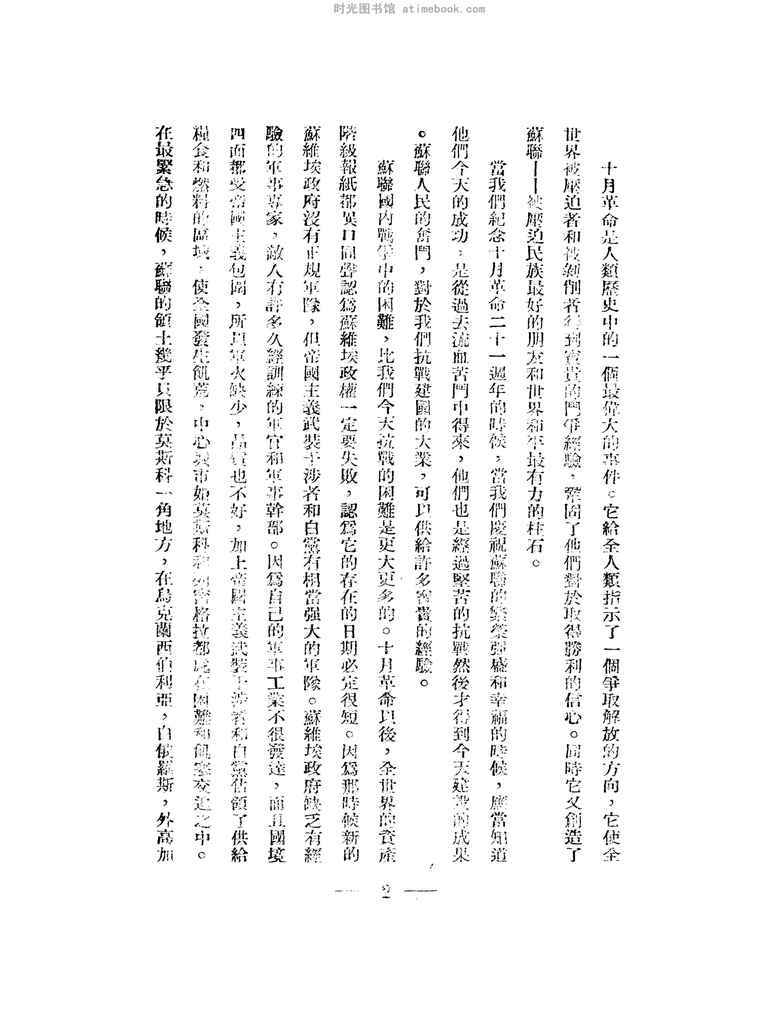 时光图书馆 atimebook.com
十月革命是人類歷史中的一個最偉大的事件。它給全人類指示了一個爭取解放的方向，它使全
世界被壓迫者和被剝削者得到寶貴的鬥爭經驗，鞏固了他們對於取得勝利的信心。同時它又創造了
蘇聯——被壓迫民族最好的朋友和世界和平最有力的柱石。
當我們紀念十月革命二十一週年的時候，當我們慶祝蘇聯的繁榮强盛和幸福的時候，應當知道
他們今天的成功，是從過去流血苦鬥中得來，他們也是經過堅苦的抗戰然後才得到今天建設的成果
。蘇聯人民的奮鬥，對於我們抗戰建國的大業，可以供給許多寶貴的經驗。
蘇聯國內戰爭中的困難，比我們今天抗戰的困難是更大更多的。十月革命以後，全世界的資產
階級報紙都異口同聲認爲蘇維埃政權一定要失敗，認爲它的存在的日期必定很短。因爲那時候新的
蘇維埃政府沒有正規軍隊，但帝國主義武裝干涉者和白黨有相當强大的軍隊。蘇維埃政府缺乏有經
驗的軍事專家，敵人有許多久經訓練的軍官和軍事幹部。因爲自己的軍事工業不很發達，而且國境
四面都受帝國主義包圍，所以軍火缺少，品質也不好，加上帝國主義武裝干涉者和白黨佔領了供給
糧食和燃料的區域，使全國發生飢荒，中心城市如莫斯科和列寧格拉都處在困難和飢寒交迫之中。
在最緊急的時候，蘇聯的領土幾乎只限於莫斯科一角地方，在烏克蘭西伯利亞，白俄羅斯，外高加
— 2 —